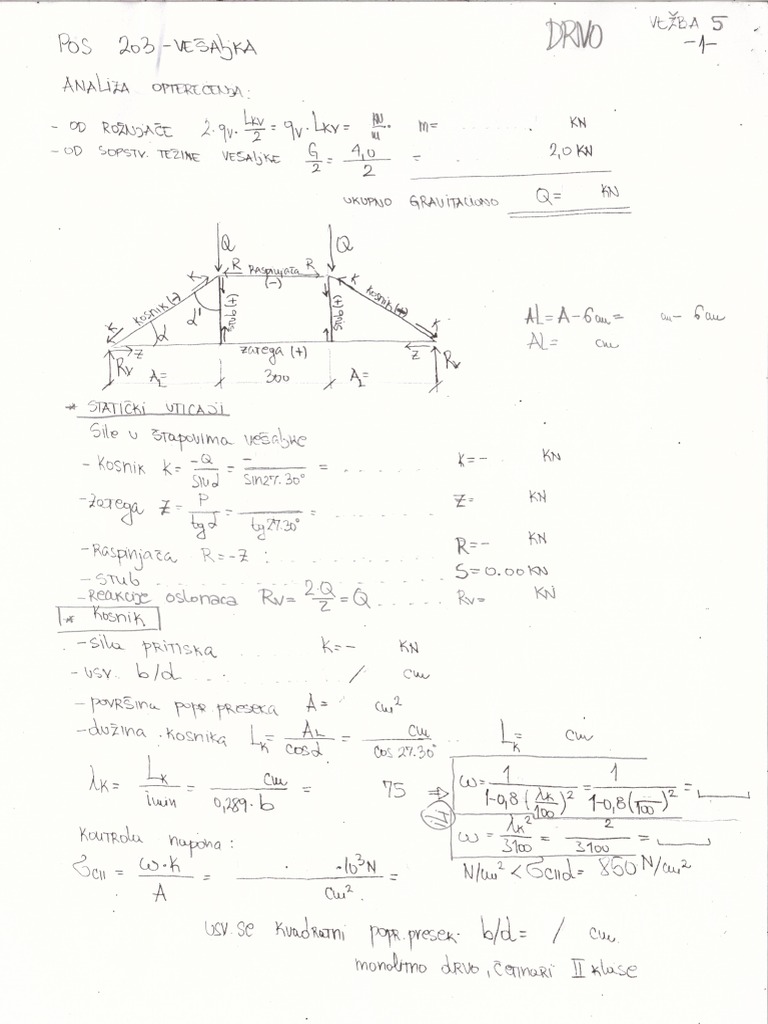 DRVO
VEŽBA 5
-1-
POS 203 - VEŠALJKA
ANALIZA OPTEREĆENJA:
- OD ROŽNJAČE 2·qv·Lkv/2 = qv·Lkv = kN/m · m= ........ KN
- OD SOPSTV. TEŽINE VEŠALJKE G/2 = 4,0/2 = ........ 2,0 KN
UKUPNO GRAVITACIONO Q= KN
Q Q
K R Raspinjača R K
(-)
kosnik (-) α' stub (+) stub (+) kosnik
K α K
Z zatega (+) Z
Rv Rv
AL 300 AL
AL = A - 6cm = cm - 6cm
AL = cm
* STATIČKI UTICAJI
Sile u štapovima vešaljke
- Kosnik K = -Q/sinα = -/sin27.30° = ........ K=- KN
- Zatega Z = P/tgα = /tg27.30° = ........ Z= KN
- Raspinjača R=-Z : ........ R=- KN
- STUB ........ S=0.00KN
- Reakcije oslonaca Rv = 2·Q/2 = Q ........ Rv= KN
* Kosnik
- sila pritiska ........ K=- KN
- usv. b/d ........ / cm
- površina popr. preseka A= cm²
- dužina kosnika Lk = AL/cosα = cm/cos27.30° .. Lk= cm
λk = Lk/imin = cm/0,289·b = 75 ⇒ ω = 1/1-0,8(λk/100)² = 1/1-0,8(/100)² =
ili
ω = λk²/3100 = ²/3100 =
Kontrola napona:
σcII = ω·K/A = ·10³N/cm² = N/cm² < σcIId = 850 N/cm²
usv. se kvadratni popr. presek b/d= / cm
monolitno drvo, četinari II klase